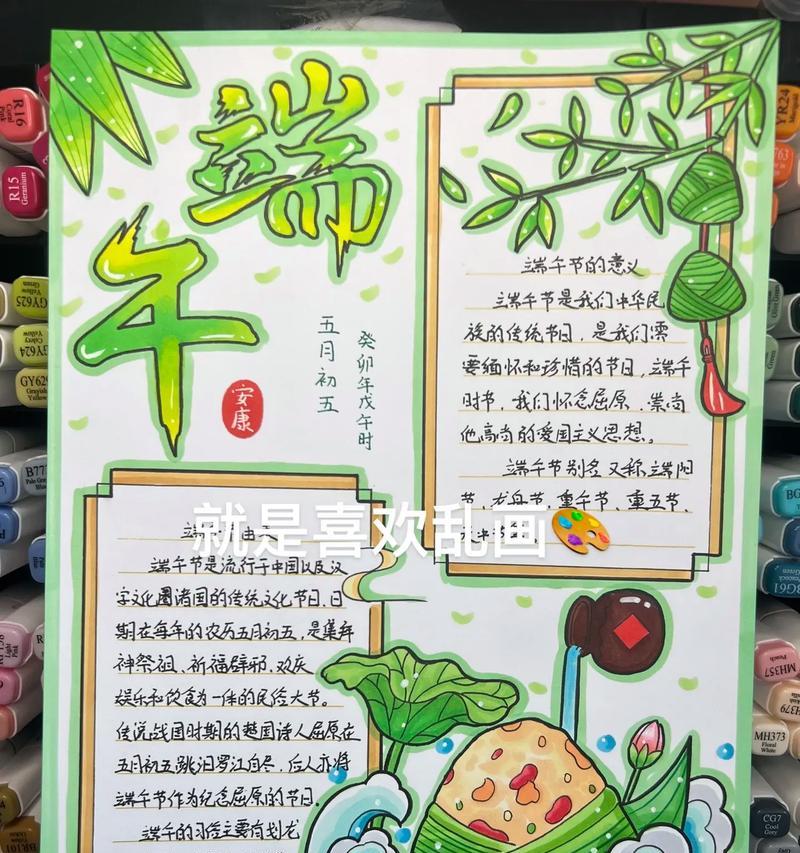 端午
安康
五月初五
癸卯年戊午时
端午节的意义
端午节是我们中华民
族的传统节日，是我们需
要缅怀和珍惜的节日，端午
时节，我们怀念屈原，崇尚
他高尚的爱国主义思想。
端午节别名又称端阳
节、龙舟节、重午节、重五节、
就是喜欢乱画
端午节是流行于中国以及汉
字文化圈诸国的传统文化节日，日
期在每年的农历五月初五，是集拜
神祭祖、祈福辟邪、欢庆
娱乐和饮食为一体的民俗大节。
传说战国时期的楚国诗人屈原在
五月初五跳汨罗江自尽，后人亦将
端午节作为纪念屈原的节日。
端午的习俗主要有划龙
R16
Coral Pink
R15
Geranium
GY625
GY624
YR24
BG61
MH357
Peach
MH373
Floral White
CG7
Cool Grey